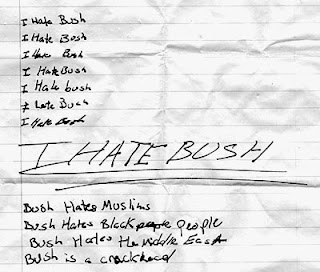 I Hate Bush
I Hate Bush
I Hate Bush
I Hate Bush
I Hate bush
I Hate Bush
I Hate Bush
I HATE BUSH
Bush Hates Muslims
Bush Hates Black people people
Bush Hates the Middle East
Bush is a crackhead